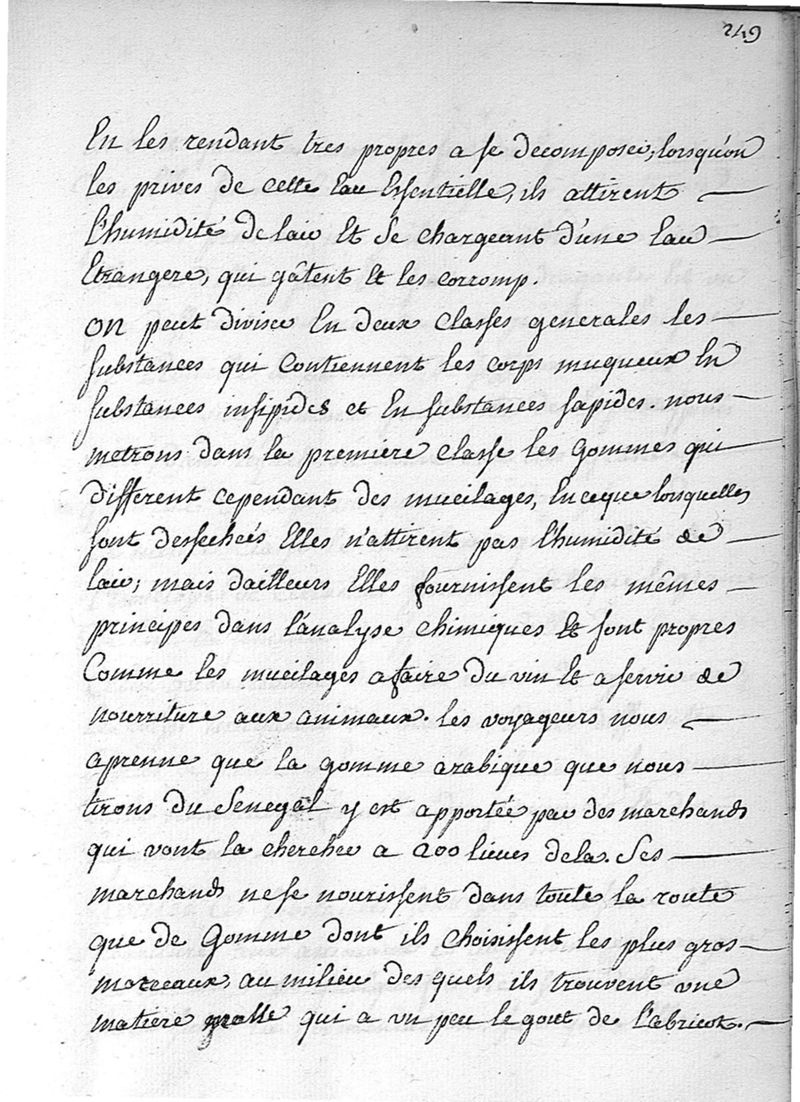 249
En les rendant tres propres a se decomposer, lorsqu'on
les prives de cette Eau Essentielle, ils attirent
l'humidité de lair Et se chargeant d'une Eau
Etrangere, qui gâtent Et les corromp.
on peut diviser En deux classes generales les
substances qui contiennent les corps muqueux En
substances insipides et En substances sapides. nous
metrons dans la premiere classe les gommes qui
different cependant des mucilages, En ce que lorsquelles
sont dessechées Elles n'attirent pas l'humidité de
lair; mais dailleurs Elles fournissent les mêmes
principes dans l'analyse chimiques Et sont propres
Comme les mucilages a faire du vin Et a servir de
nourriture aux animaux. les voyageurs nous
aprenne que la gomme arabique que nous
tirons du Senegal y est apportée par des marchands
qui vont la chercher a 200 lieues dela. Ses
marchands ne se nourissent dans toute la route
que de Gomme dont ils choisissent les plus gros
morceaux, au milieu des quels ils trouvent une
matiere molle qui a un peu le gout de l'abricot.